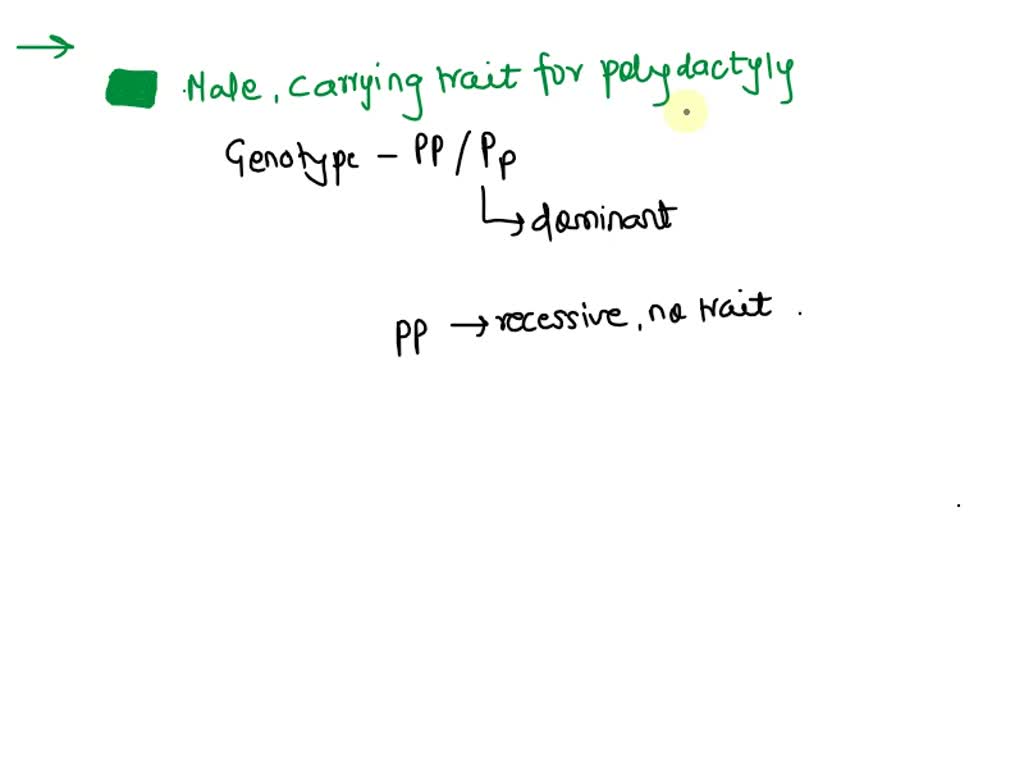 Male, carrying trait for polydactyly
Genotype – PP / Pp
dominant
pp → recessive, no trait .